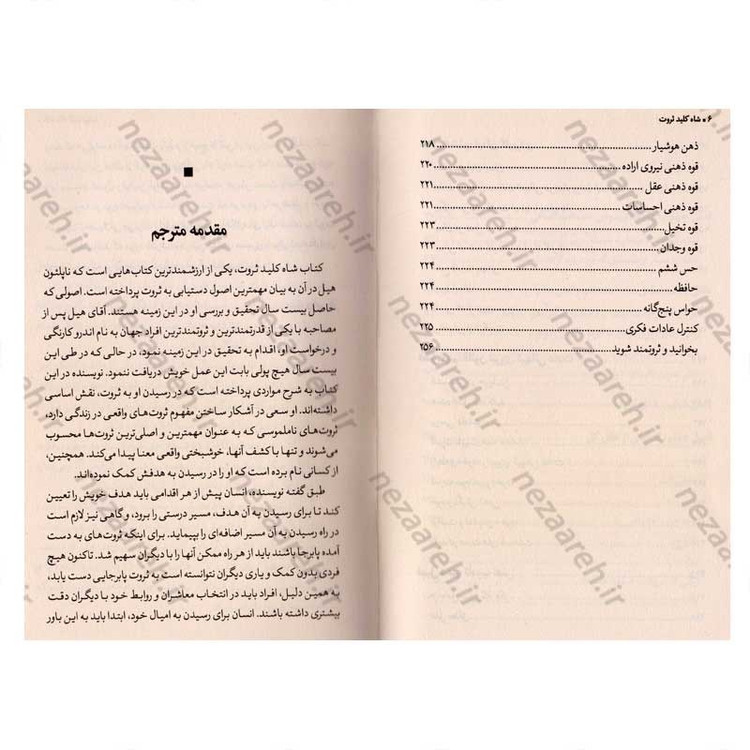 ۶ ■ شاه کلید ثروت
ذهن هوشیار ........ ۲۱۸
قوه ذهنی نیروی اراده ........ ۲۲۰
قوه ذهنی عقل ........ ۲۲۱
قوه ذهنی احساسات ........ ۲۲۱
قوه تخیل ........ ۲۲۳
قوه وجدان ........ ۲۲۳
حس ششم ........ ۲۲۴
حافظه ........ ۲۲۴
حواس پنج‌گانه ........ ۲۲۴
کنترل عادات فکری ........ ۲۲۵
بخوانید و ثروتمند شوید ........ ۲۵۶
مقدمه مترجم
کتاب شاه کلید ثروت، یکی از ارزشمندترین کتاب‌هایی است که ناپلئون
هیل در آن به بیان مهمترین اصول دستیابی به ثروت پرداخته است. اصولی که
حاصل بیست سال تحقیق و بررسی او در این زمینه هستند. آقای هیل پس از
مصاحبه با یکی از قدرتمندترین و ثروتمندترین افراد جهان به نام اندرو کارنگی
و درخواست او، اقدام به تحقیق در این زمینه نمود، در حالی که در طی این
بیست سال هیچ پولی بابت این عمل خویش دریافت ننمود. نویسنده در این
کتاب به شرح مواردی پرداخته است که در رسیدن او به ثروت، نقش اساسی
داشته‌اند. او سعی در آشکار ساختن مفهوم ثروت‌های واقعی در زندگی دارد،
ثروت‌های ناملموسی که به عنوان مهمترین و اصلی‌ترین ثروت‌ها محسوب
می‌شوند و تنها با کشف آنها، خوشبختی واقعی معنا پیدا می‌کند. همچنین،
از کسانی نام برده است که او را در رسیدن به هدفش کمک نموده‌اند.
طبق گفته نویسنده، انسان پیش از هر اقدامی باید هدف خویش را تعیین
کند تا برای رسیدن به آن هدف، مسیر درستی را برود، و گاهی نیز لازم است
در راه رسیدن به آن مسیر اضافه‌ای را بپیماید. برای اینکه ثروت‌های به دست
آمده پابرجا باشند باید از هر راه ممکن آنها را با دیگران سهیم شد. تاکنون هیچ
فردی بدون کمک و یاری دیگران نتوانسته است به ثروت پابرجایی دست یابد،
به همین دلیل، افراد باید در انتخاب معاشران و روابط خود با دیگران دقت
بیشتری داشته باشند. انسان برای رسیدن به امیال خود، ابتدا باید به این باور
nezaareh.ir
nezaareh.ir
nezaareh.ir
nezaareh.ir
nezaareh.ir
nezaareh.ir